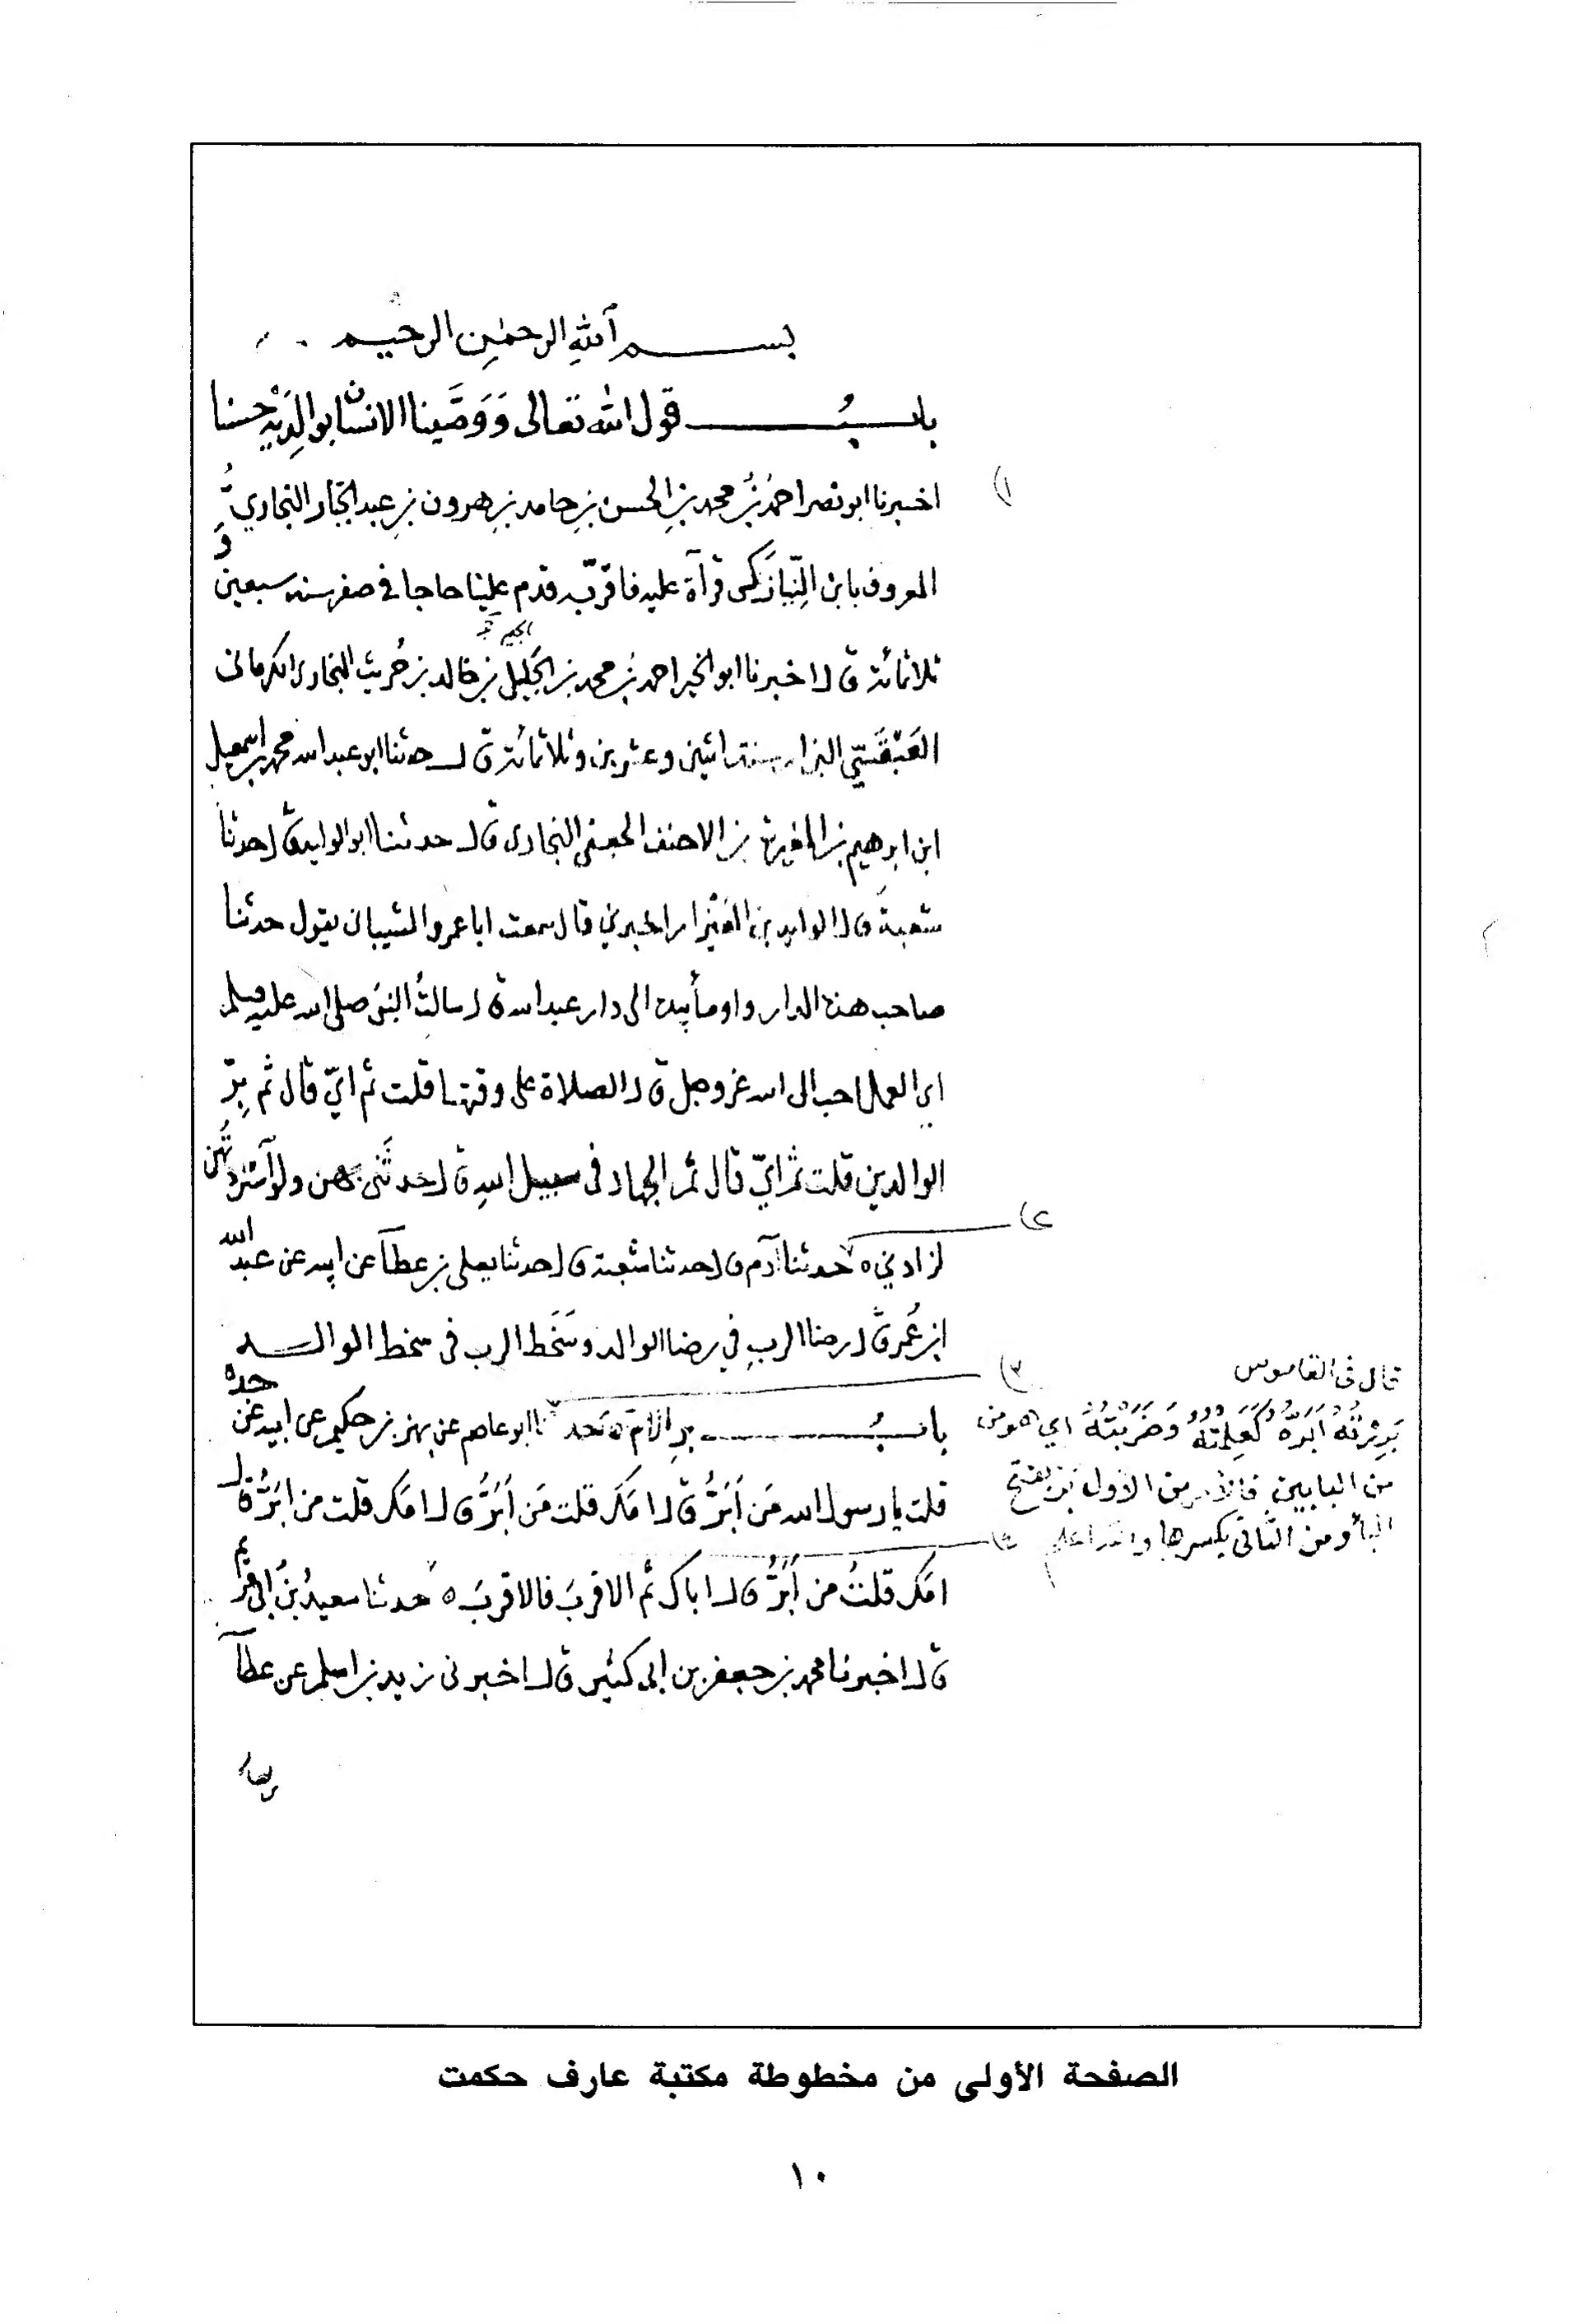 بسم الله الرحمن الرحيم
باب قول الله تعالى وَوَصَّينا الانسان بوالِدَيْهِ حسنا
اخبرنا ابو نصر احمدُ بنُ محمد بنِ الحسن بنِ حامد بنِ هرون بنِ عبد الجبار البخاريُّ
المعروف بابن النِّيَازَكى قرآة عليه فاقرّبه قدم علينا حاجا في صفر سنه سبعين و
ثلاثمائة قال اخبرنا ابو الخير احمد بنُ محمد بن الجَليل بن خالد بن حُريث البخارى الكرمانى
العَبْقَسِيّ البزار سنة اثنين وعشرين وثلاثمائة قال حدثنا ابو عبد الله محمد بن اسمعيل
ابن ابرهيم بن المغيرة بن الاحنف الجعفى البخارى قال حدثنا ابو الوليد قال حدثنا
شعبة قال الوليد بن العَيْزار اخبرني قال سمعت ابا عمرو الشيبانى يقول حدثنا
صاحب هذه الدار واومأ بيده الى دار عبد الله قال سالتُ النبى صلى الله عليه وسلم
اي العمل احب الى الله عز وجل قال الصلاة على وقتها قلت ثم ايّ قال ثم بِرّ
الوالدين قلت ثم ايّ قال ثم الجهاد فى سبيل الله قال حدثنى بهن ولو استزدتهُن
لزادني ه حدثنا آدم قال حدثنا شعبة قال حدثنا يعلى بن عطآ عن ابيه عن عبد الله
ابن عُمر قال رضا الرب في رضا الوالد وسَخَط الرب فى سخط الوالد
بابُ بر الام ه حدثنا ابو عاصم عن بهز بن حكيم عن ابيه عن جده
قلت يا رسول الله مَن اَبَرُّ قال امك قلت مَن اَبَرُّ قال امك قلت من ابَرُّ قال
امك قلتُ من اَبَرُّ قال اباك ثم الاقربَ فالاقربَ ه حدثنا سعيدُ بنُ ابى مريم
قال اخبرنا محمد بن جعفر بن ابى كثير قال اخبرنى زيد بن اسلم عن عطآ
قال فى القاموس
بَرِرْتُهُ اَبَرُّهُ كَعَلِمْتُهُ وَضَرَبْتُهُ اي هو من
من البابين فالامر من الاول بَرَّ بفتح
البا ومن الثانى بكسرها والله اعلم
١)
٢)
٣)
الصفحة الأولى من مخطوطة مكتبة عارف حكمت
١٠